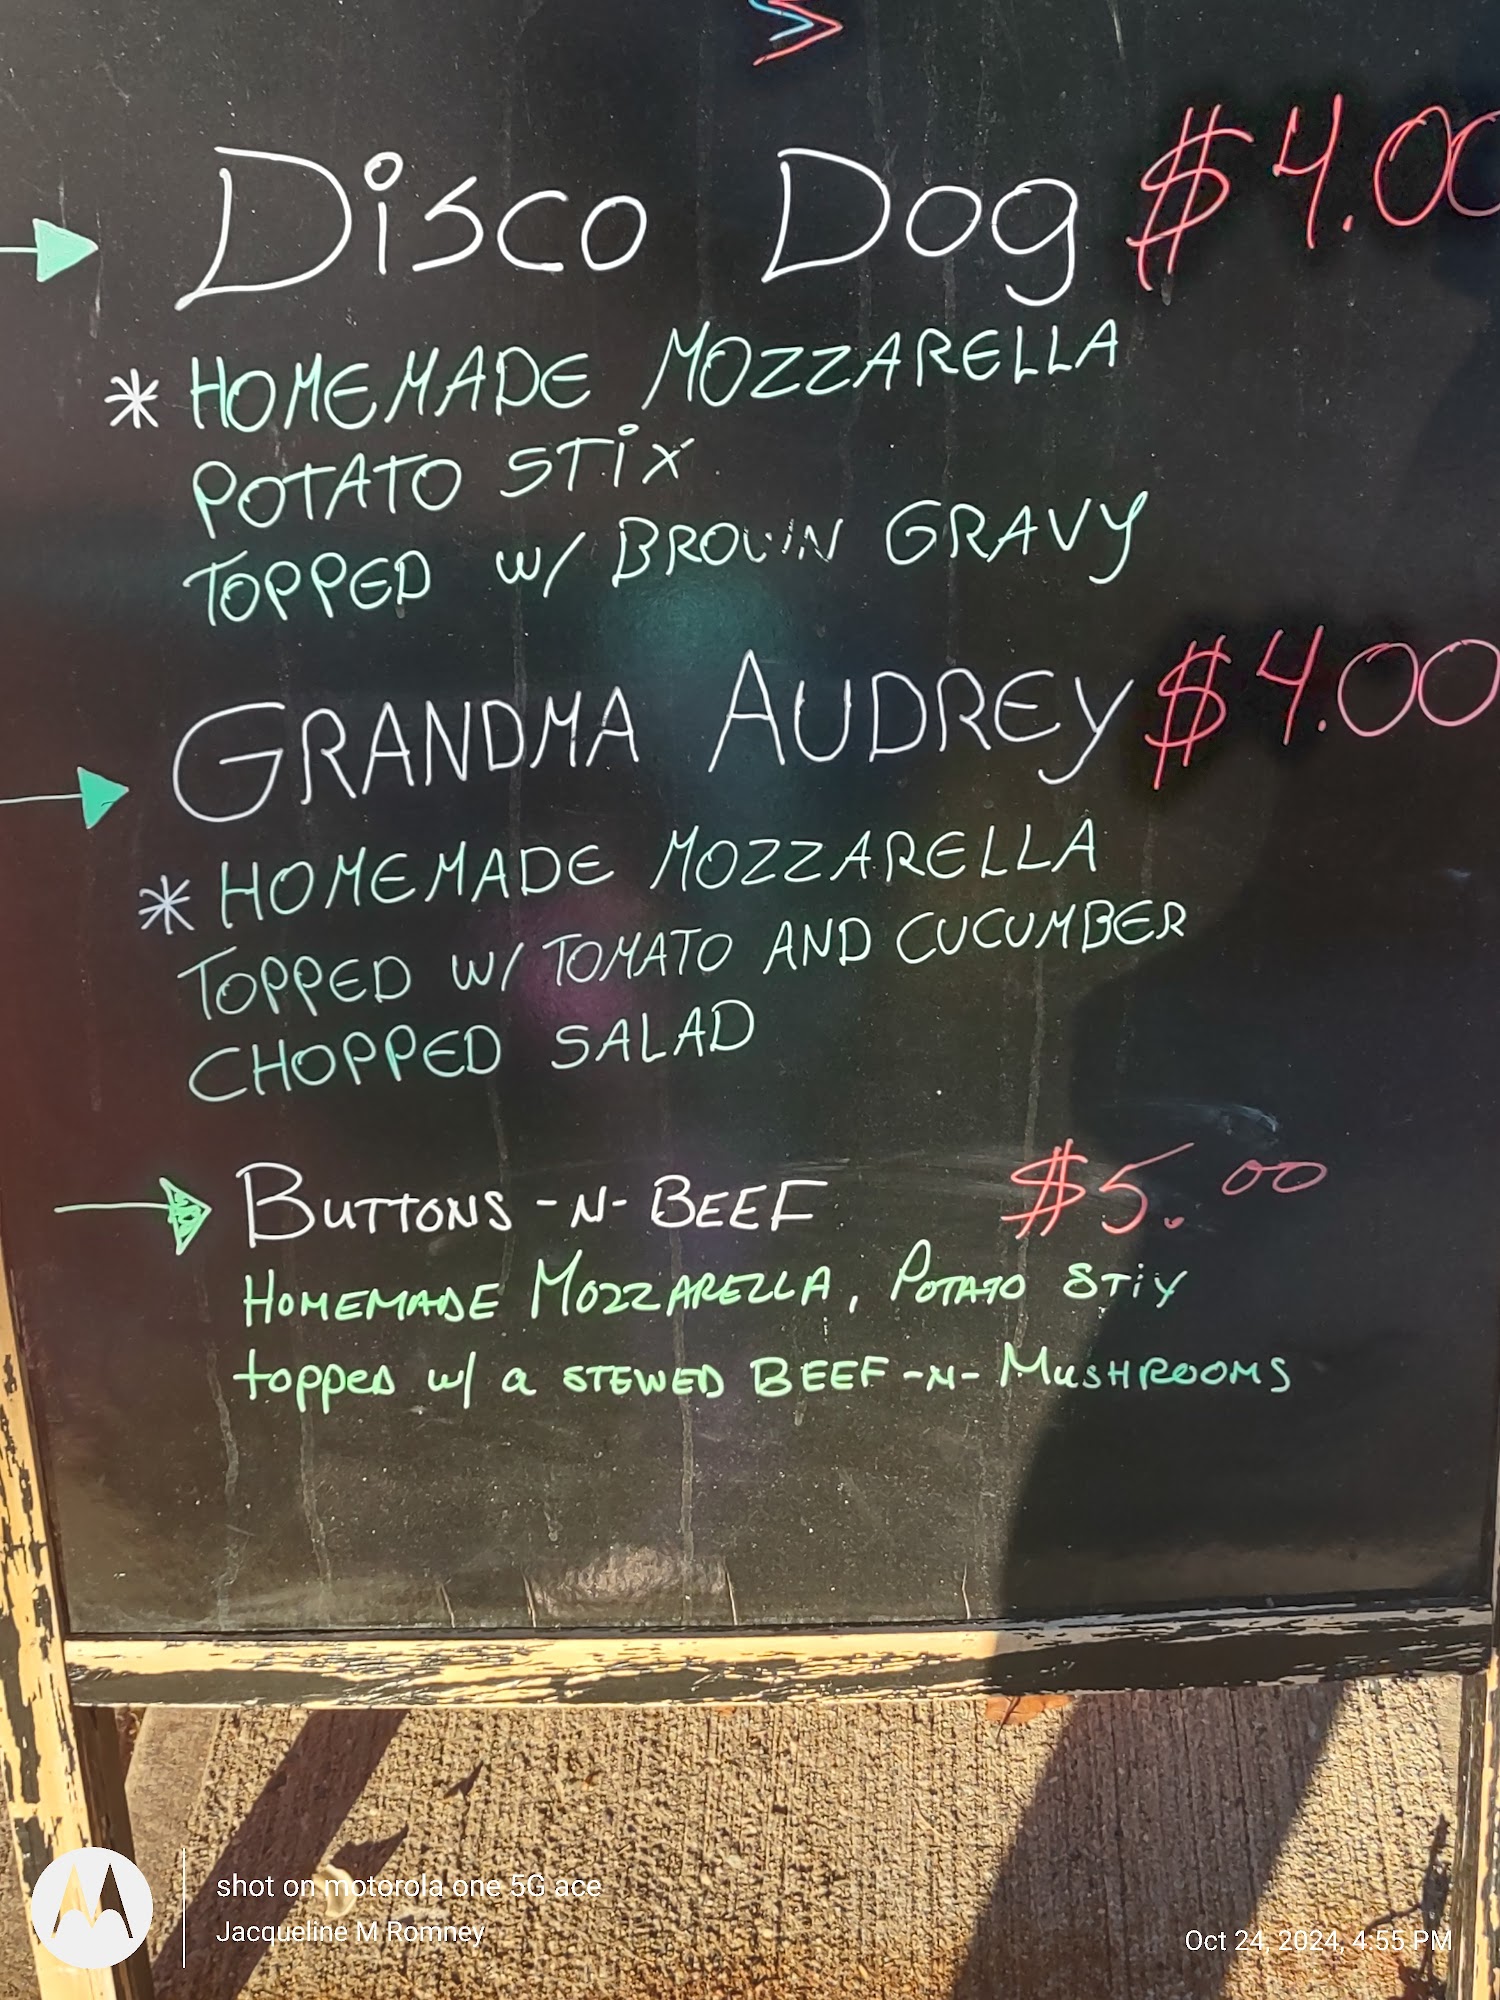 Disco Dog $4.00
* HOMEMADE MOZZARELLA
POTATO STIX
TOPPED W/ BROWN GRAVY
GRANDMA AUDREY $4.00
* HOMEMADE MOZZARELLA
TOPPED W/ TOMATO AND CUCUMBER
CHOPPED SALAD
BUTTONS -N- BEEF $5.00
HOMEMADE MOZZARELLA, POTATO STIX
topped w/ a STEWED BEEF -N- MUSHROOMS
shot on motorola one 5G ace
Jacqueline M Romney
Oct 24, 2024, 4:55 PM